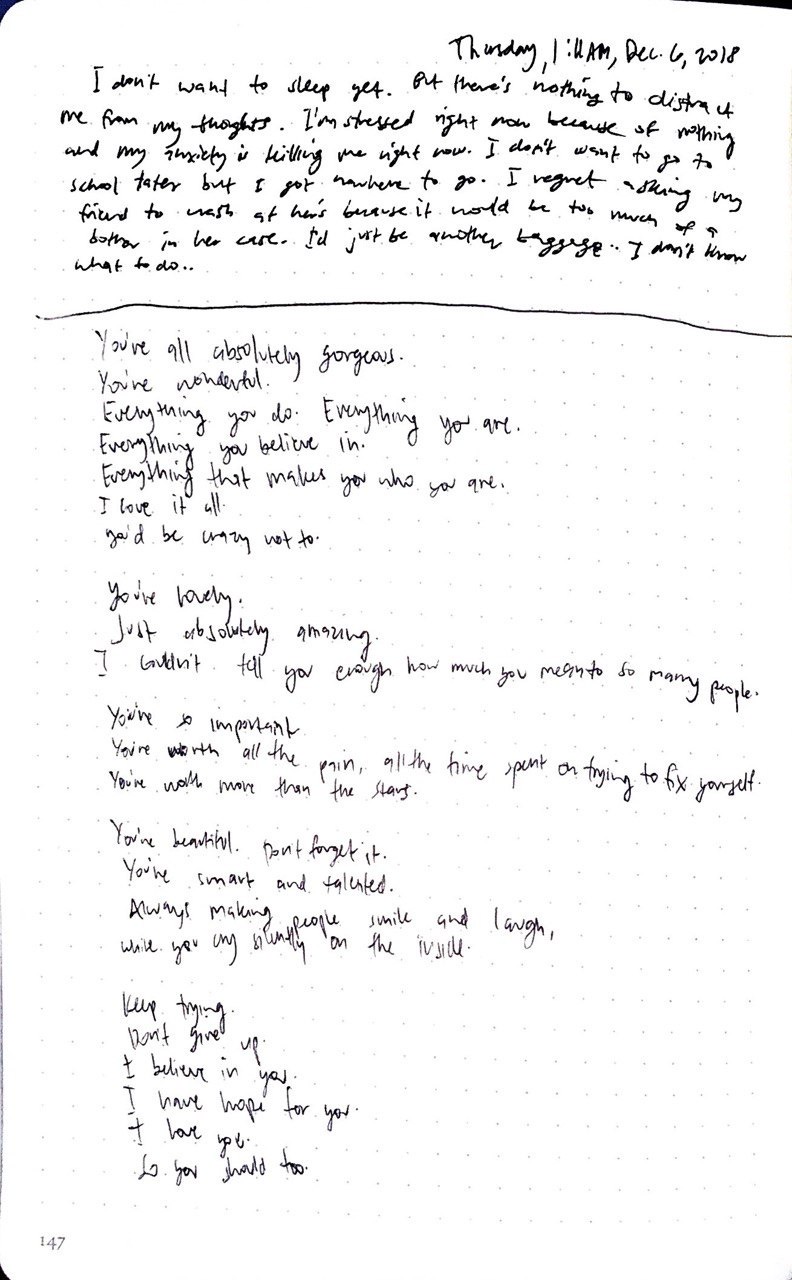 Thursday, 1:11AM, Dec. 6, 2018
I don't want to sleep yet. But there's nothing to distract
me from my thoughts. I'm stressed right now because of nothing
and my anxiety is killing me right now. I don't want to go to
school later but I got nowhere to go. I regret asking my
friend to crash at hers because it would be too much of a
bother in her case. I'd just be another baggage.. I don't know
what to do..
You're all absolutely gorgeous.
You're wonderful.
Everything you do. Everything you are.
Everything you believe in.
Everything that makes you who you are.
I love it all.
you'd be crazy not to.
You're lovely.
Just absolutely amazing.
I couldn't tell you enough how much you mean to so many people.
You're so important
You're worth all the pain, all the time spent on trying to fix yourself.
You're worth more than the stars.
You're beautiful. Don't forget it.
You're smart and talented.
Always making people smile and laugh,
while you cry silently on the inside.
Keep trying.
Don't give up.
I believe in you.
I have hope for you.
I love you.
So you should too.
147